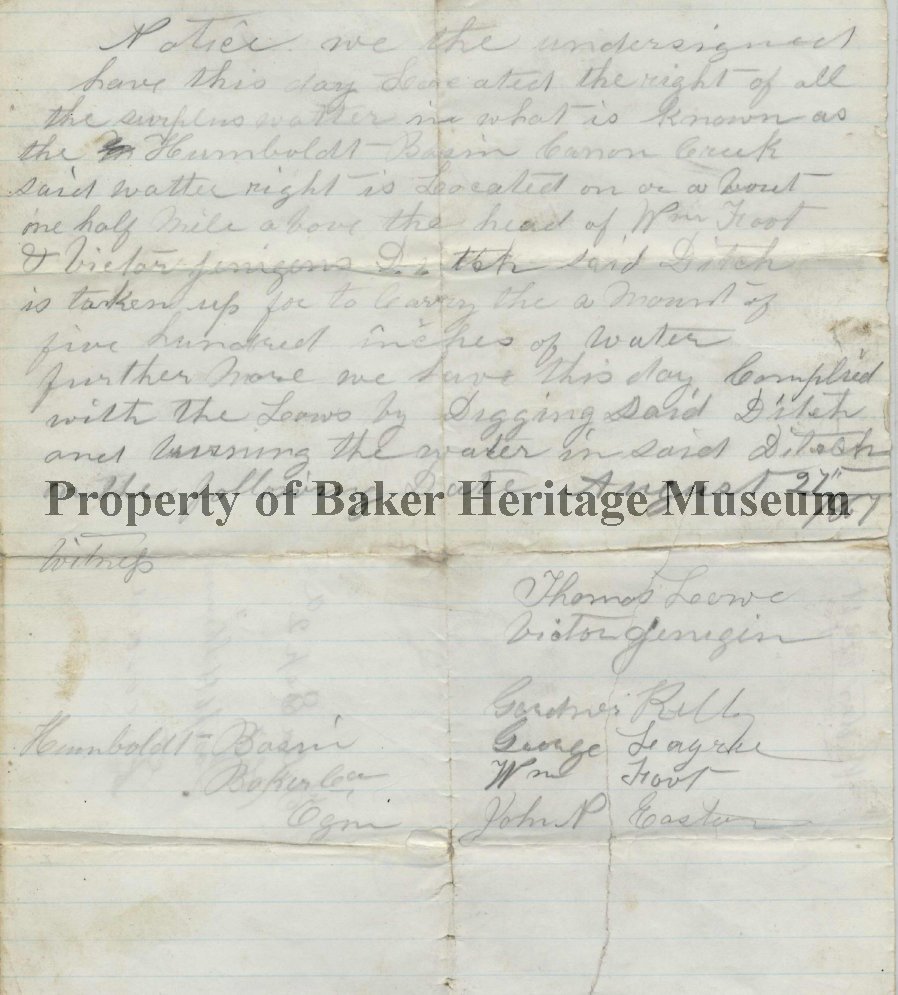 Notice we the undersigned
have this day Located the right of all
the surplus watter in what is known as
the Humboldt Basin Canon Creek
said watter right is Located on or a bout
one half Mile above the head of Wm Foot
& Victor Jenigens Ditteh said Ditch
is taken up for to Carry the a Mount of
five hundred inches of water
further More we have this day Complied
with the Laws by Digging Said Ditch
and turning the water in said Ditch
the following Date August 27th
Property of Baker Heritage Museum
1867
Witness
Thomas Lowe
Victor Jenigin
Gardner
George
Humboldt Basin
Wm Foot
Baker Co
John N Easton
Ogn